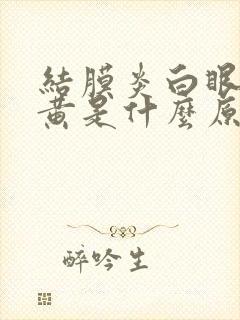 結膜炎白眼
黃是什麼原
醉吟生